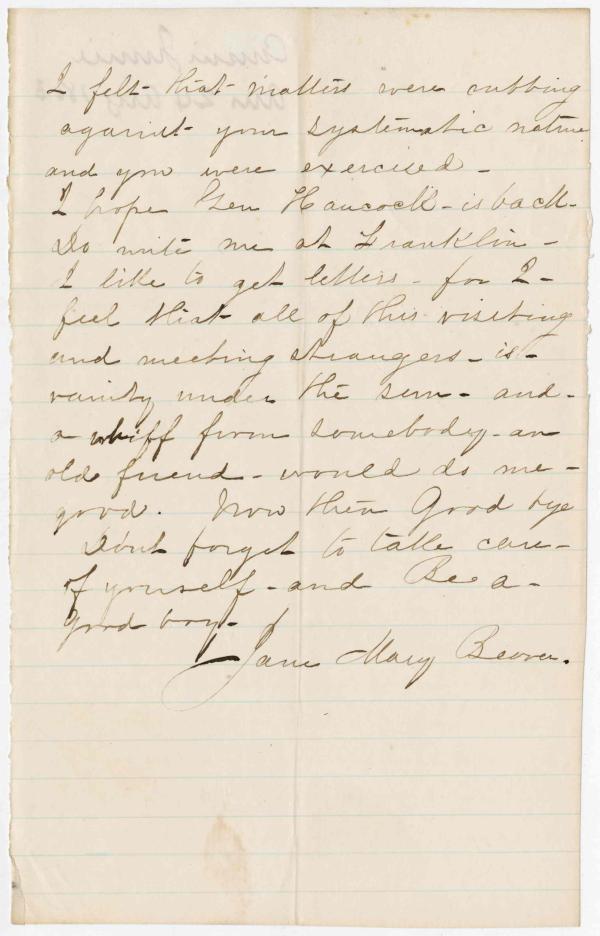 I felt that matters were rubbing
against your systematic nature
and you were exercised -
I hope Gen Hancock - is back -
Do write me at Franklin -
I like to get letters - for I -
feel that all of this visiting
and meeting strangers - is -
vanity under the sun - and -
a whiff from somebody - an
old friend - would do me -
good. Now then Good bye
Dont forget to take care -
of yourself - and Be a -
good boy -
Jane Mary Beaver.